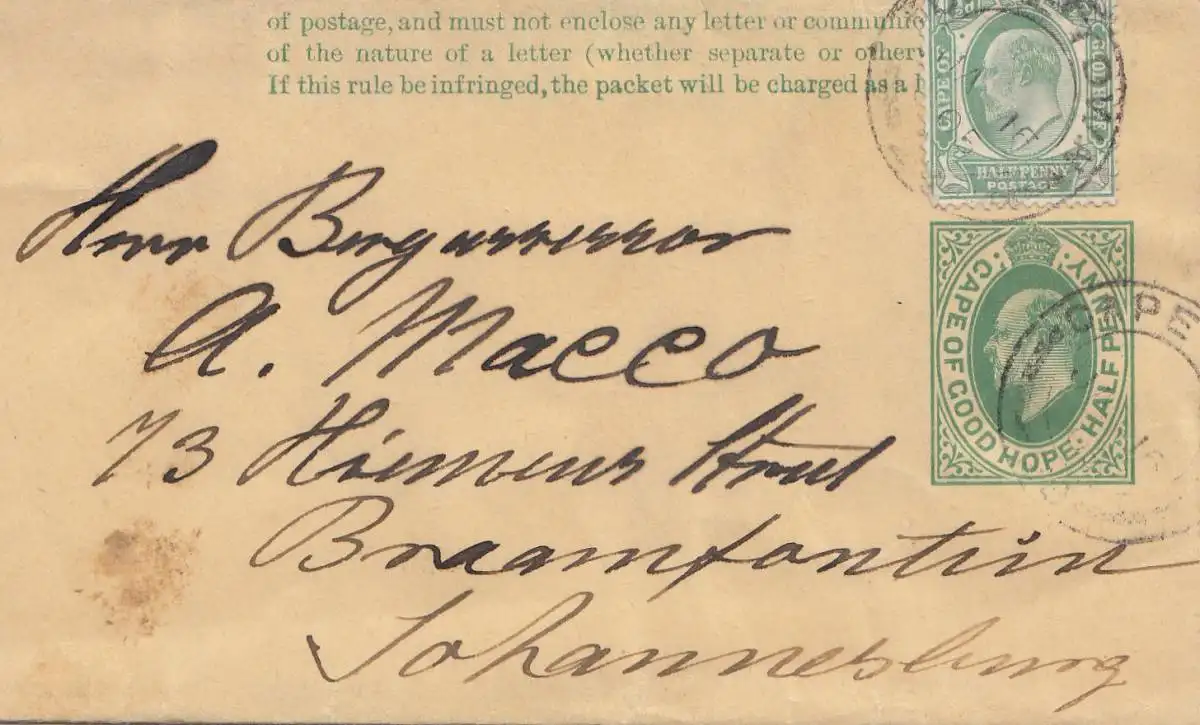 of postage, and must not enclose any letter or communic
of the nature of a letter (whether separate or other
If this rule be infringed, the packet will be charged as a l
CAPE OF GOOD HOPE
HALFPENNY
POSTAGE
CAPE OF GOOD HOPE · HALF PENNY
Herr Bergassessor
A. Macco
73 Siemens Street
Braamfontein
Johannesburg